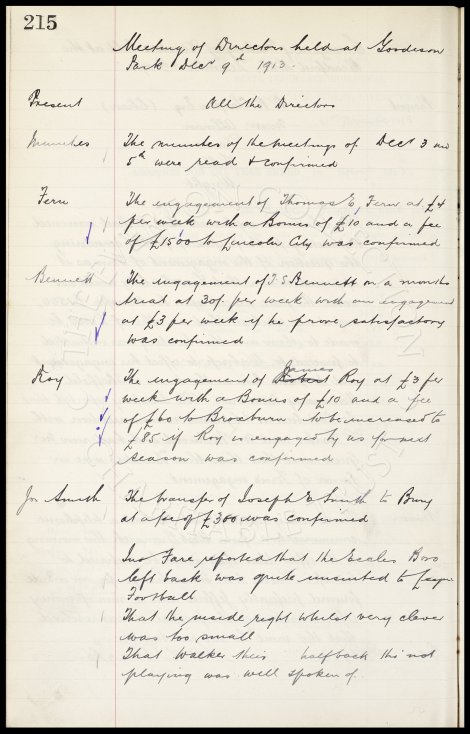 215
Meeting of Directors held at Goodison
Park Decr 9th 1913.
Present All the Directors
Minutes The minutes of the meetings of Dect 3 and
5th were read & confirmed
Fern The engagement of Thomas E. Fern at £4
per week with a Bonus of £10 and a fee
of £1500 to Lincoln City was confirmed
Bennett The engagement of J S Bennett on a months
trial at 30/- per week with an engagement
at £3 per week if he prove satisfactory
was confirmed
James
Roy The engagement of Robert Roy at £3 per
week with a Bonus of £10 and a fee
of £60 to Broxburn to be increased to
£85 if Roy is engaged by us for next
season was confirmed
Jos Smith The transfer of Joseph E Smith to Bury
at a fee of £300 was confirmed
Jno Fare reported that the Eccles Boro
left back was quite unsuited to League
Football
That the inside right whilst very clever
was too small
That Walker their halfback tho not
playing was well spoken of.